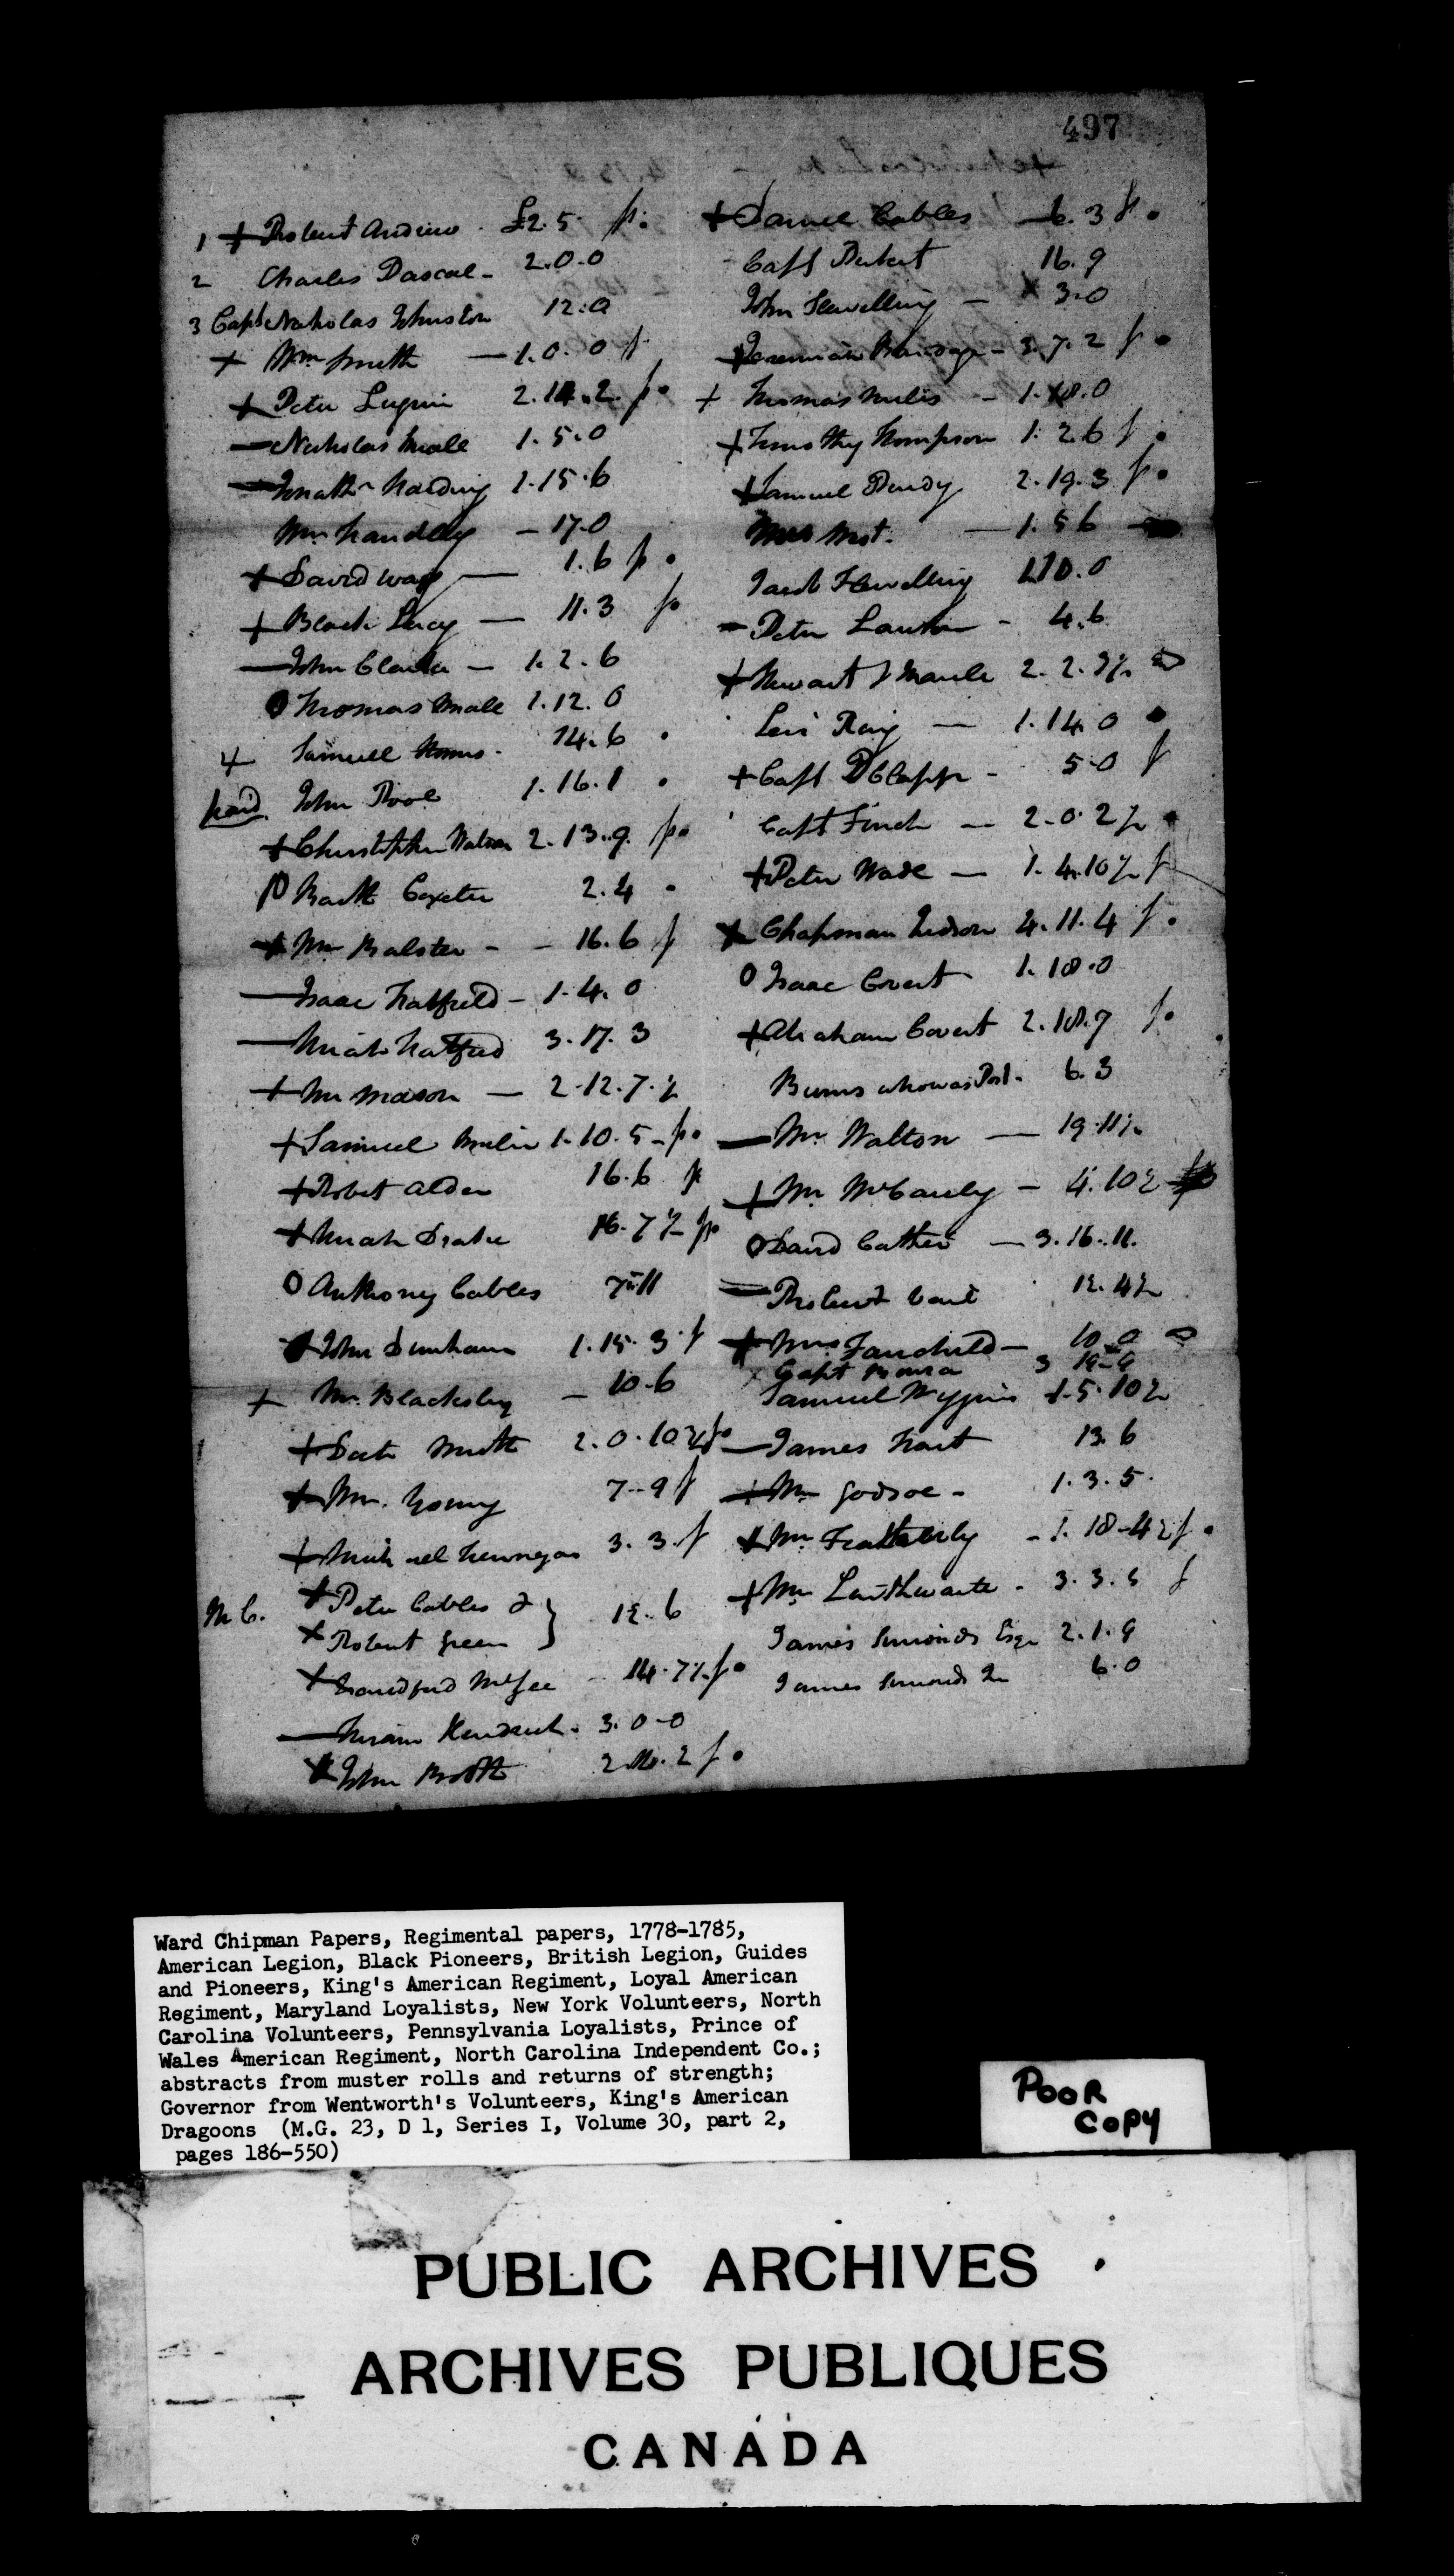 497
1 + Robert Andrew £2.5 p.
2 Charles Pascal - 2.0.0
3 Capt Nicholas Johnston 12.0
+ Wm Smith - 1.0.0 p
+ Peter Lugrin 2.14.2. p.
Nicholas Meale 1.5.0
Jonathn Harding 1.15.6
Mr Handlly - 17.0
+ David Way - 1.6 p
+ Black Lucy - 11.3 p
John Clarke - 1.2.6
O Thomas Meale 1.12.0
4 Samuell 14.6
paid John Pool 1.16.1
+ Christopher Watson 2.13.9. p
Coxeter 2.4
+ Mr Balster - - 16.6 p
Isaac Hatfield - 1.4.0
Hatfield 3.17.3
+ Mr Mason - 2.12.7.½
+ Samuel 1.10.5 - p
+ Robet Alden 16.6 p
+ Drake 16.7½ p
O Anthony Cables 7.11
+ John Dunham 1.15.3 p
+ Mr. Blacksley - 10.6
+ Smith 2.0.10½ p
+ Mr. Young 7-9 p
+ 3.3. p
M C. + Peter Cables &
+ Robert Green } 12.6
+ McGee - 14.7½ p
Hiram Kendrick. 3.0-0
+ John Booth p
+ Daniel Cables 6.3 p
Capt 16.9
John Flewelling - 3.0
+ Jeremiah - 3.7.2 p
+ Thomas - 1.18.0
+ Timothy Thompson 1.2.6 p
+ Samuel Purdy 2.19.3 p
Mrs - 1.5.6
Flewelling 1.10.0
Peter - 4.6
+ 2.2.
Levi - 1.14.0
+ Capt Clapp - 5.0 p
Capt Finch - 2.0.2½
+ Peter Wade - 1.4.10½ p
+ Chapman Judson 4.11.4 p
O Isaac Covert 1.18.0
+ Abraham Covert 2.18.7 p
Burns who was 6.3
Mr Walton - 19.11½
+ Mr McCauly - 4.10½
O David - 3.16.11.
Robert 12.4½
+ Mrs Fairchild - 10.0
Capt 3 19-9
Samuel Wiggins 1.5.10½
James Hait 13.6
+ Mr Godsoe - 1.3.5.
+ Mr - 1.18-4½ p
+ Mr Lauthwaite - 3.3.5 p
James Simonds Esqr 2.1.9
James Simonds Jr 6.0
Ward Chipman Papers, Regimental papers, 1778-1785,
American Legion, Black Pioneers, British Legion, Guides
and Pioneers, King's American Regiment, Loyal American
Regiment, Maryland Loyalists, New York Volunteers, North
Carolina Volunteers, Pennsylvania Loyalists, Prince of
Wales American Regiment, North Carolina Independent Co.;
abstracts from muster rolls and returns of strength;
Governor from Wentworth's Volunteers, King's American
Dragoons (M.G. 23, D 1, Series I, Volume 30, part 2,
pages 186-550)
POOR
COPY
PUBLIC ARCHIVES
ARCHIVES PUBLIQUES
CANADA